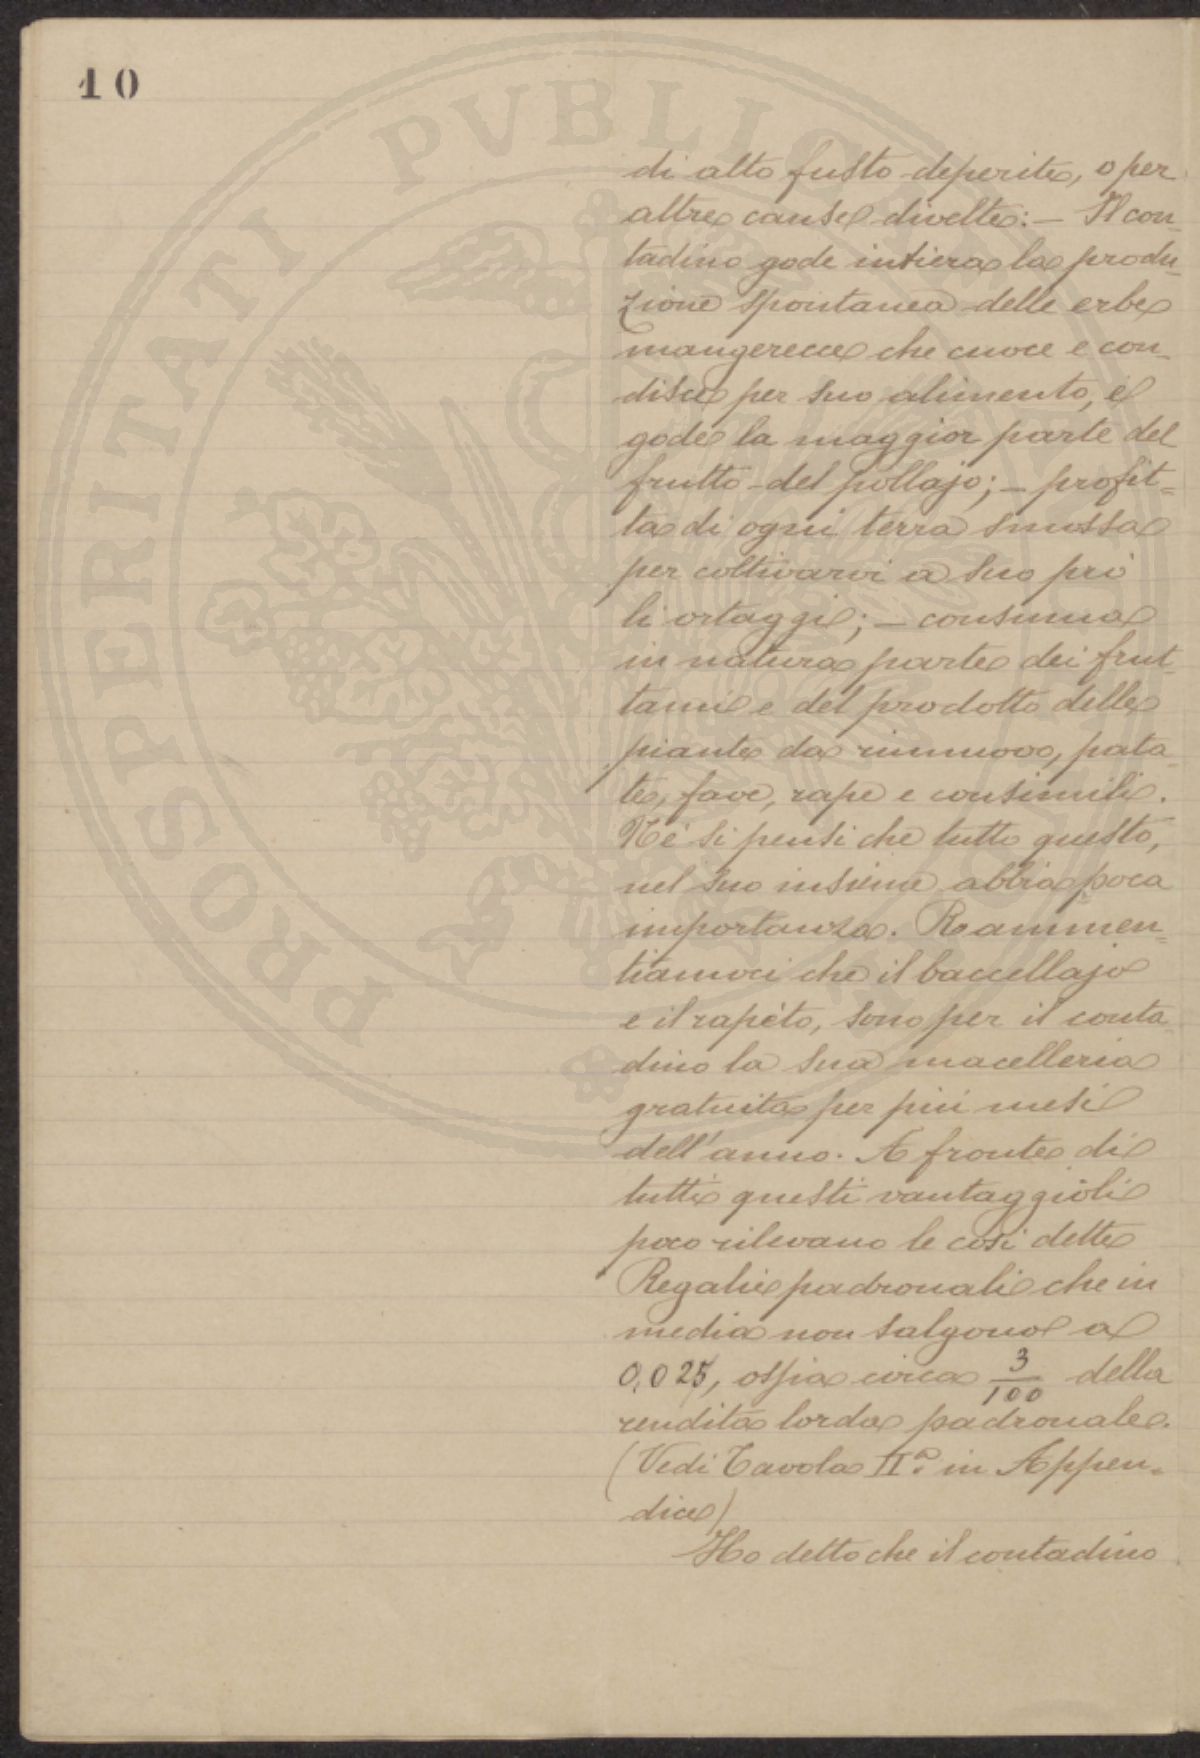 10
PROSPERITATI PVBLICAE
di alto fusto deperite, o per
altre cause divelte: — Il con-
tadino gode intiera la produ-
zione spontanea delle erbe
mangerecce che cuoce e con-
disce per suo alimento, e
gode la maggior parte del
frutto del pollajo; — profit=
ta di ogni terra smossa
per coltivarvi a suo prò
li ortaggi; — consuma
in natura parte dei frut-
tami e del prodotto delle
piante da rinnuovo, pata-
te, fave, rape e consimili.
Nè si pensi che tutto questo,
nel suo insieme abbia poca
importanza. Rammen=
tiamoci che il baccellajo
e il rapèto, sono per il conta-
dino la sua macelleria
gratuita per più mesi
dell'anno. A fronte di
tutti questi vantaggioli
poco rilevano le così dette
Regalie padronali che in
media non salgono a
0,025, ossia circa 3/100 della
rendita lorda padronale.
(Vedi Tavola IIª in Appen-
dice)
Ho detto che il contadino